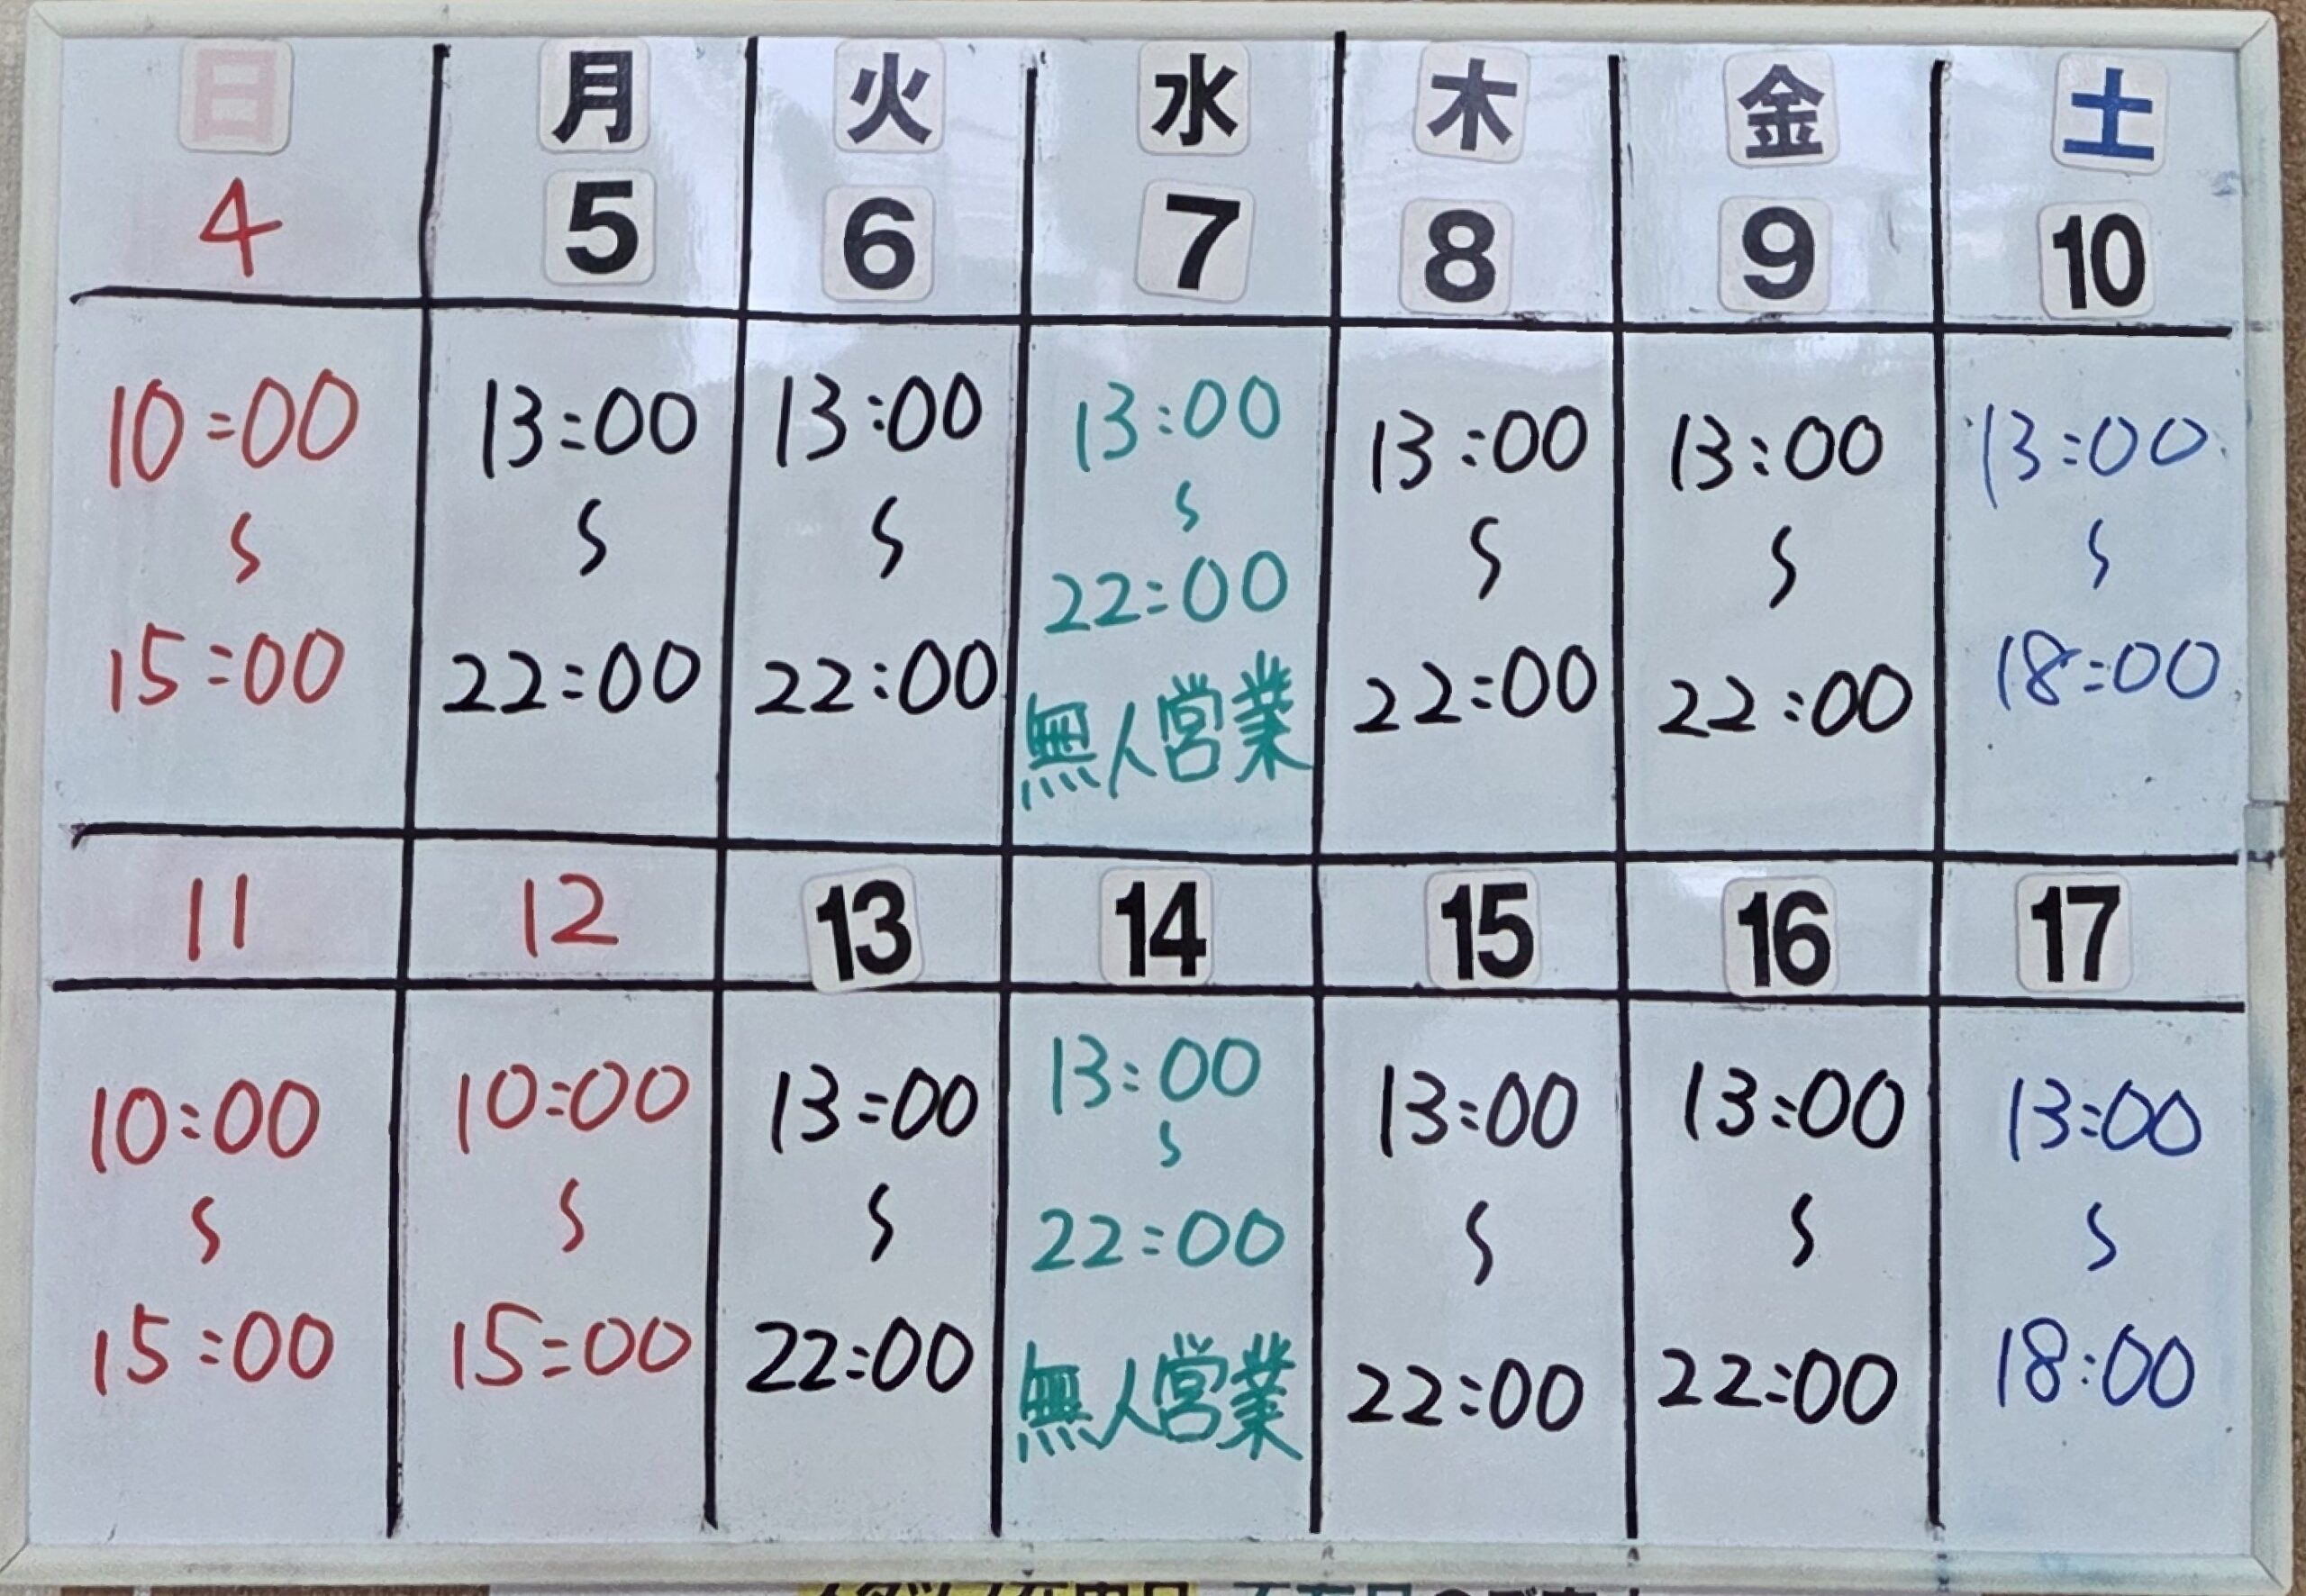 日 月 火 水 木 金 土
4 5 6 7 8 9 10
10:00 13:00 13:00 13:00 13:00 13:00 13:00
〜 〜 〜 〜 〜 〜 〜
15:00 22:00 22:00 22:00 22:00 22:00 18:00
無人営業
11 12 13 14 15 16 17
10:00 10:00 13:00 13:00 13:00 13:00 13:00
〜 〜 〜 〜 〜 〜 〜
15:00 15:00 22:00 22:00 22:00 22:00 18:00
無人営業